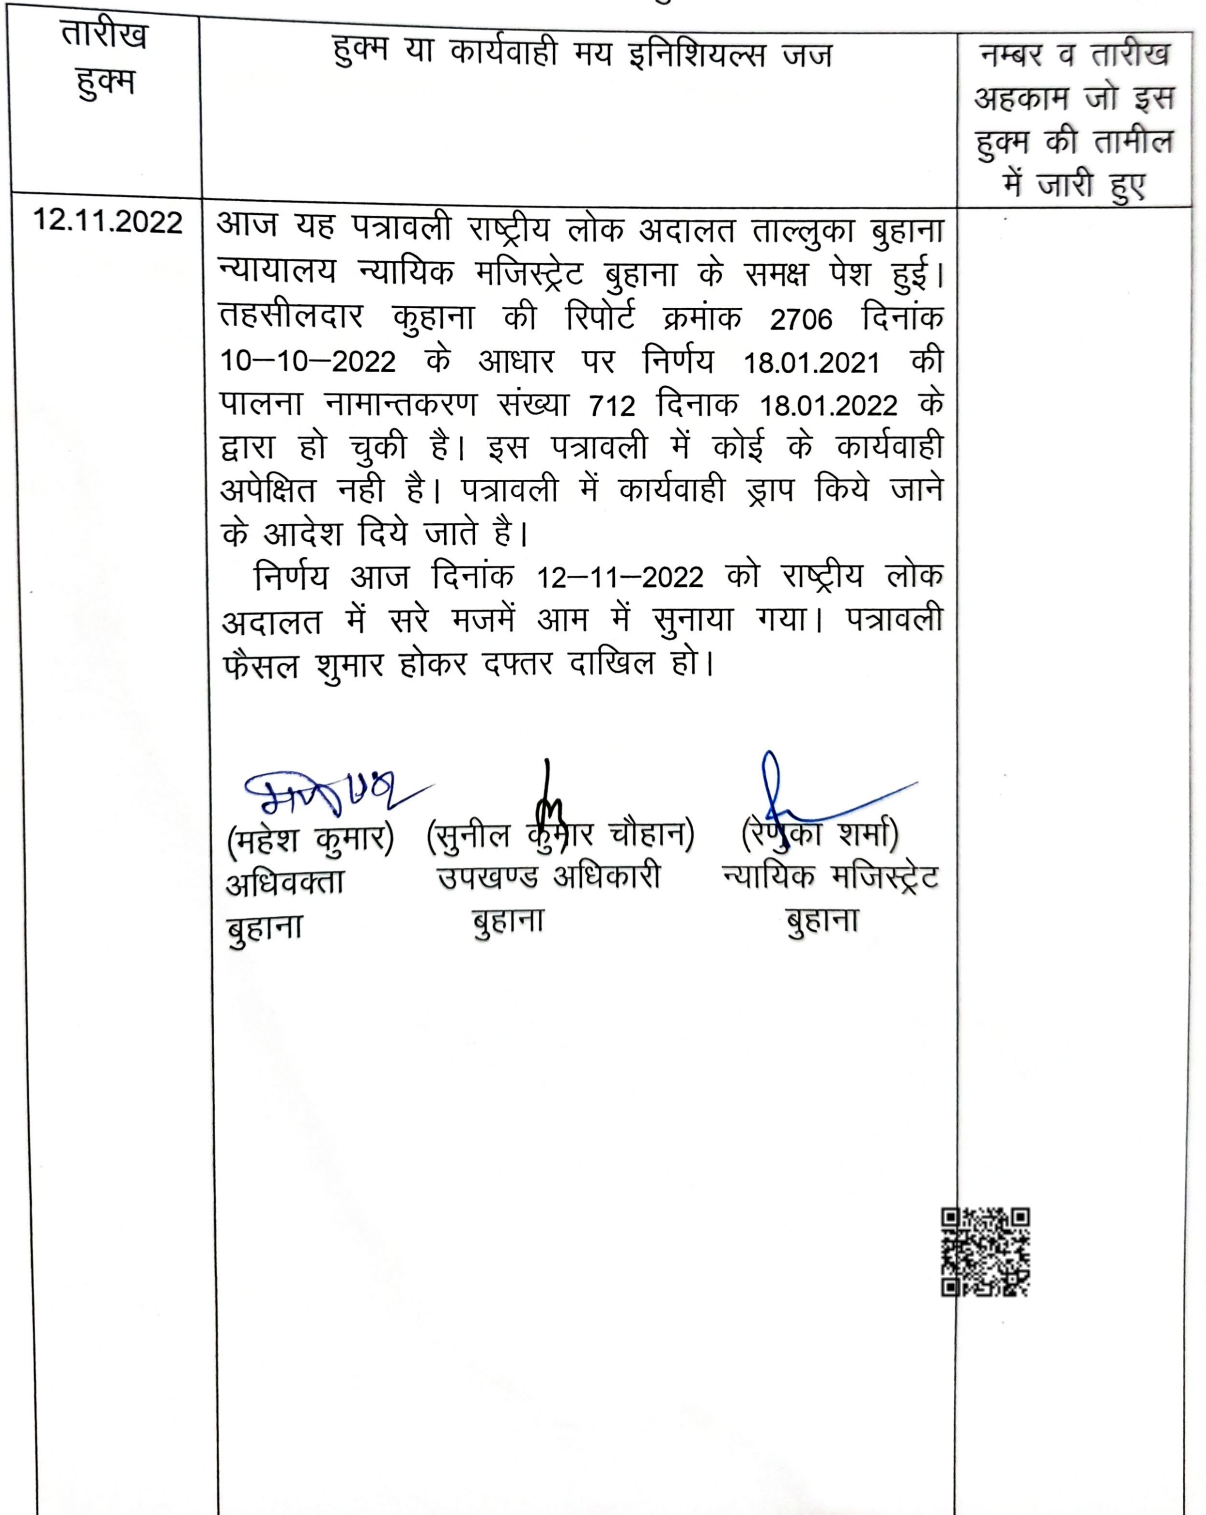 तारीख
हुक्म
हुक्म या कार्यवाही मय इनिशियल्स जज
नम्बर व तारीख
अहकाम जो इस
हुक्म की तामील
में जारी हुए
12.11.2022
आज यह पत्रावली राष्ट्रीय लोक अदालत ताल्लुका बुहाना
न्यायालय न्यायिक मजिस्ट्रेट बुहाना के समक्ष पेश हुई।
तहसीलदार कुहाना की रिपोर्ट क्रमांक 2706 दिनांक
10–10–2022 के आधार पर निर्णय 18.01.2021 की
पालना नामान्तकरण संख्या 712 दिनाक 18.01.2022 के
द्वारा हो चुकी है। इस पत्रावली में कोई के कार्यवाही
अपेक्षित नही है। पत्रावली में कार्यवाही ड्राप किये जाने
के आदेश दिये जाते है।
निर्णय आज दिनांक 12–11–2022 को राष्ट्रीय लोक
अदालत में सरे मजमें आम में सुनाया गया। पत्रावली
फैसल शुमार होकर दफ्तर दाखिल हो।
(महेश कुमार) (सुनील कुमार चौहान) (रेणुका शर्मा)
अधिवक्ता उपखण्ड अधिकारी न्यायिक मजिस्ट्रेट
बुहाना बुहाना बुहाना